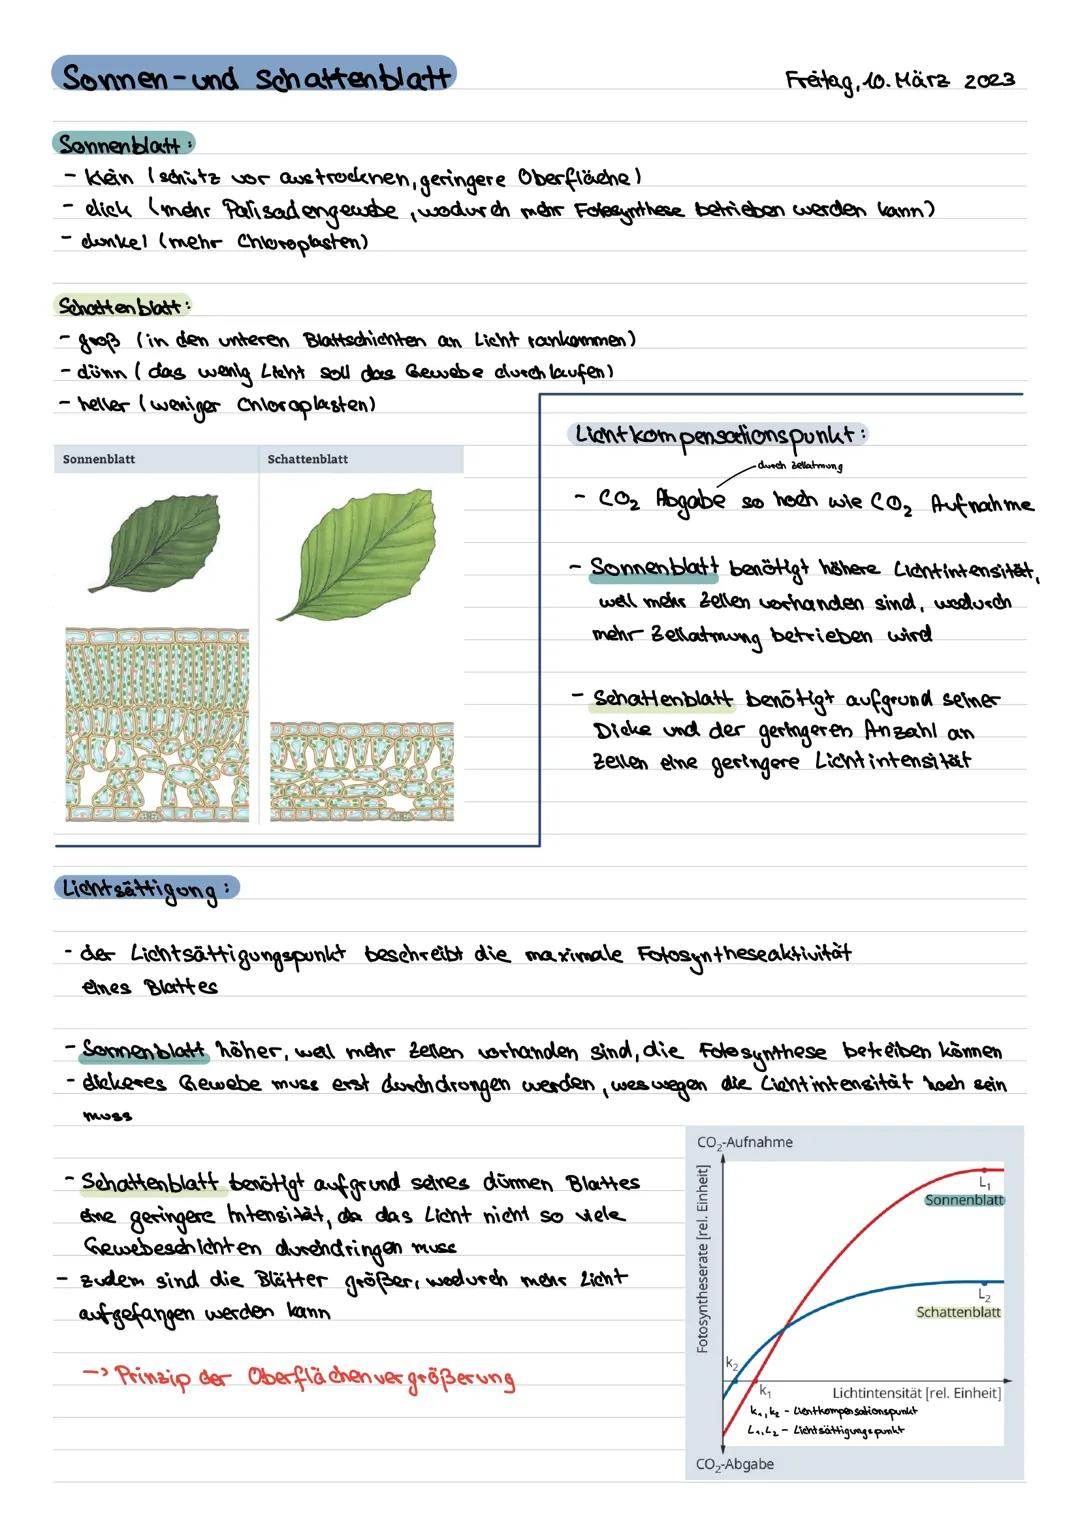 Sonnen-und Schattenblatt
Freitag, 10. März 2023
Sonnenblatt:
- klein (schütz vor austrocknen, geringere Oberfläche)
- dick (mehr Palisadengewebe, wodurch mehr Fotosynthese betrieben werden kann)
- dunkel (mehr Chloroplasten)
Schattenblatt:
- groß (in den unteren Blattschichten an Licht rankommen)
- dünn (das wenig Licht soll das Gewebe durchlaufen)
- heller (weniger Chloroplasten)
Sonnenblatt
Schattenblatt
Lichtkompensationspunkt:
durch Zellatmung
- CO₂ Abgabe so hoch wie CO₂ Aufnahme
- Sonnenblatt benötigt höhere Lichtintensität,
weil mehr Zellen vorhanden sind, wodurch
mehr Zellatmung betrieben wird
- Schattenblatt benötigt aufgrund seiner
Dicke und der geringeren Anzahl an
Zellen eine geringere Lichtintensität
Lichtsättigung:
- der Lichtsättigungspunkt beschreibt die maximale Fotosyntheseaktivität
eines Blattes
- Sonnenblatt höher, weil mehr Zellen vorhanden sind, die Fotosynthese betreiben können
- dickeres Gewebe muss erst durchdrungen werden, weswegen die Lichtintensität hoch sein
muss
- Schattenblatt benötigt aufgrund seines dünnen Blattes
eine geringere Intensität, da das Licht nicht so viele
Gewebeschichten durchdringen muss
- zudem sind die Blätter größer, wodurch mehr Licht
aufgefangen werden kann
-> Prinzip der Oberflächenvergrößerung
CO₂-Aufnahme
Fotosyntheserate [rel. Einheit]
L₁
Sonnenblatt
L₂
Schattenblatt
k₂
k₁
Lichtintensität [rel. Einheit]
k₁, k₂ - Lichtkompensationspunkt
L₁, L₂ - Lichtsättigungspunkt
CO₂-Abgabe